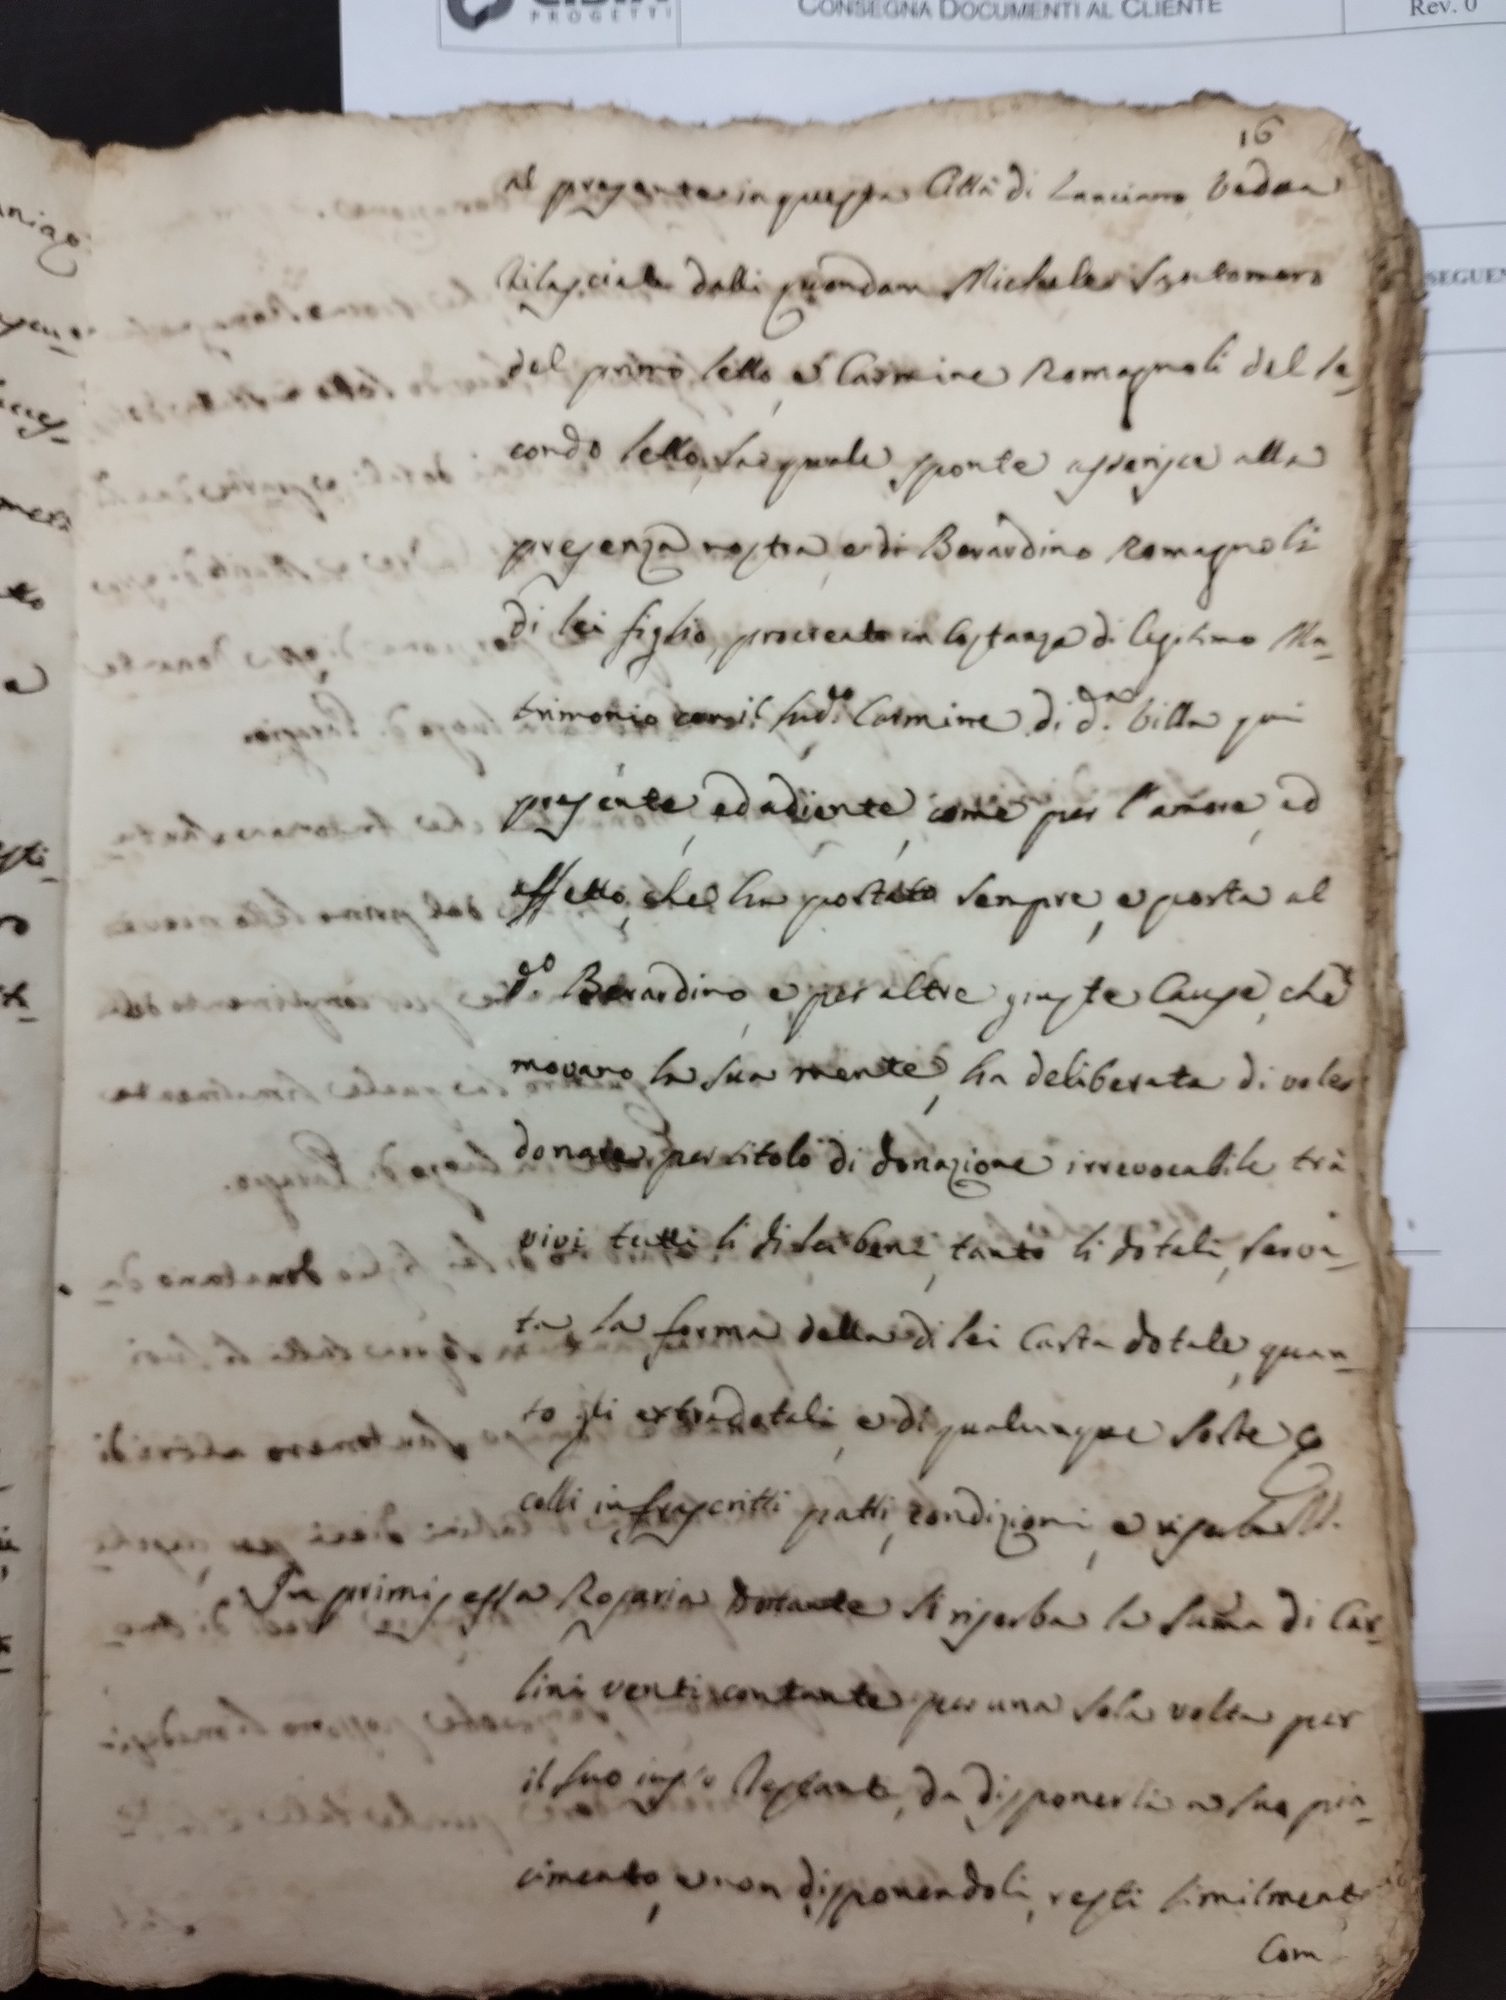 PROGETTI
CONSEGNA DOCUMENTI AL CLIENTE
Rev. 0
SEGUEN
16
al presente in questa Città di Lanciano Vedua
rilasciata dalli quondam Michele Santomero
del primo letto, e Carmine Romagnoli del se-
condo letto, la quale sponte asserisce alla
presenza nostra, e di Berardino Romagnoli
di lei figlio, procreato in Costanza di legitimo Ma-
trimonio con il sud.º Carmine di d.ª Villa qui
presente, ed audiente, come per l'amore, ed
affetto, che ha portato sempre, e porta al
d.º Berardino, e per altre giuste Cause, che
movano la sua mente, ha deliberata di voler
donare per titolo di donazione irrevocabile trà
vivi tutti li di lei beni, tanto li dotali, serva-
ta la forma della di lei Carta dotale, quan-
to gli extradotali, e di qualunque sorte
colli infrascritti patti, condizioni, e
In primis essa Rosaria si riserba la suma di Car-
lini venti contante per una sola volta per
il suo da disponerli a suo pia-
cimento, e non disponendoli, resti similmente
Com